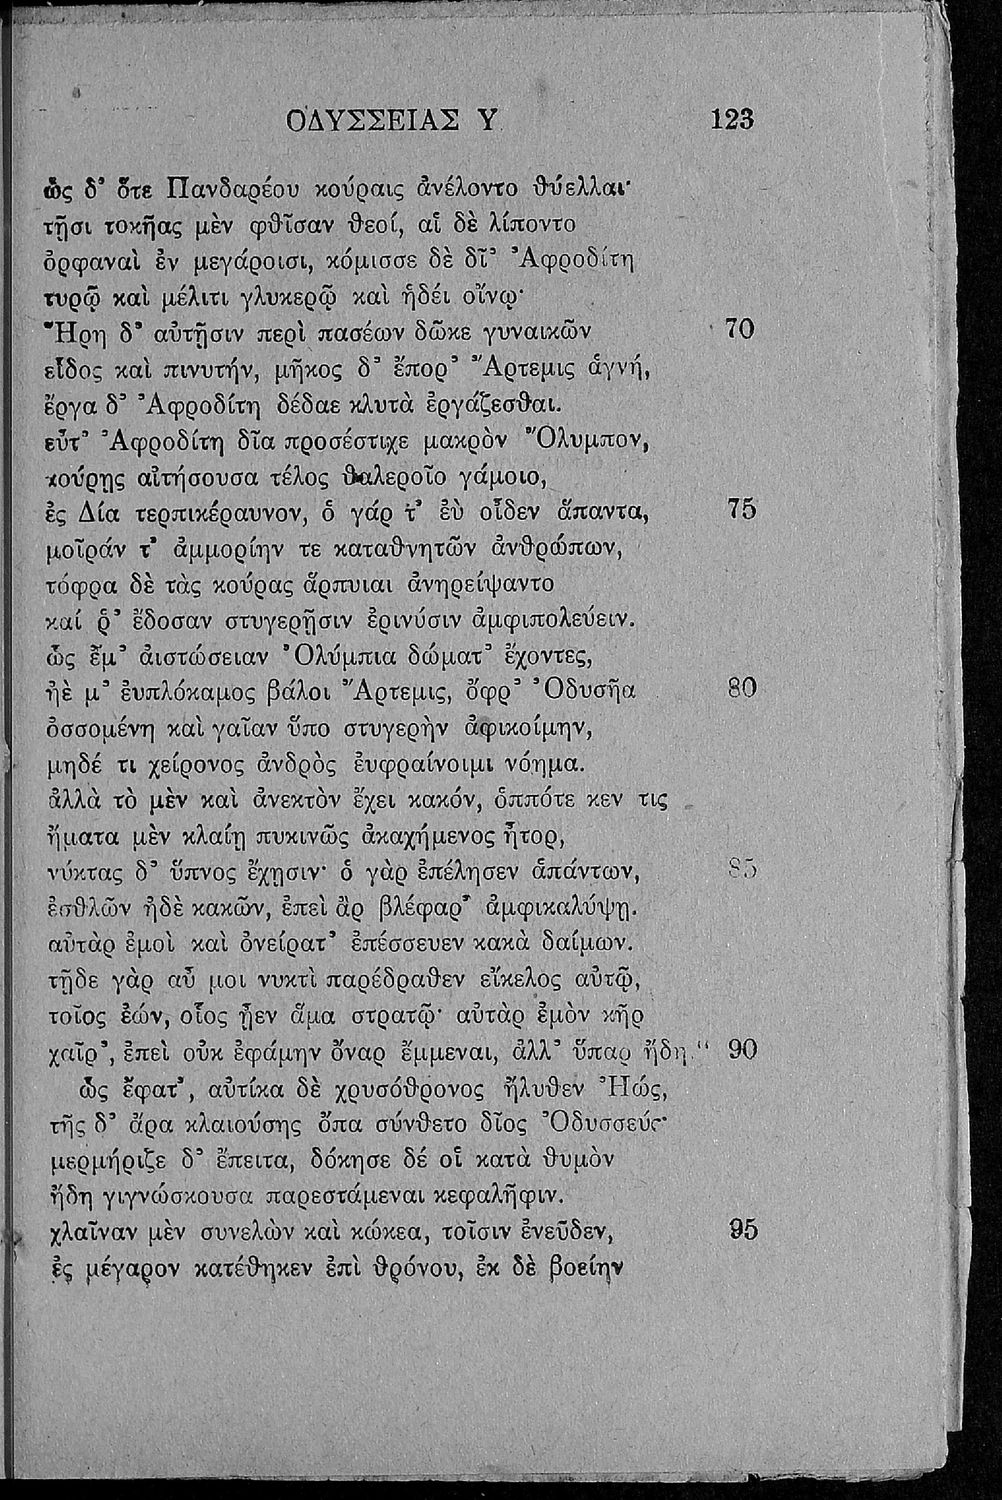 ΟΔΥΣΣΕΙΑΣ Υ 123
ὡς δ’ ὅτε Πανδαρέου κούραις ἀνέλοντο θύελλαι·
τῇσι τοκῆας μὲν φθῖσαν θεοί, αἱ δὲ λίποντο
ὀρφαναὶ ἐν μεγάροισι, κόμισσε δὲ δῖ’ Ἀφροδίτη
τυρῷ καὶ μέλιτι γλυκερῷ καὶ ἡδέι οἴνῳ·
Ἥρη δ’ αὐτῇσιν περὶ πασέων δῶκε γυναικῶν 70
εἶδος καὶ πινυτήν, μῆκος δ’ ἔπορ’ Ἄρτεμις ἁγνή,
ἔργα δ’ Ἀφροδίτη δέδαε κλυτὰ ἐργάζεσθαι.
εὖτ’ Ἀφροδίτη δῖα προσέστιχε μακρὸν Ὄλυμπον,
κούρῃς αἰτήσουσα τέλος θαλεροῖο γάμοιο,
ἐς Δία τερπικέραυνον, ὁ γάρ τ’ ἐὺ οἶδεν ἅπαντα, 75
μοῖράν τ’ ἀμμορίην τε καταθνητῶν ἀνθρώπων,
τόφρα δὲ τὰς κούρας ἅρπυιαι ἀνηρείψαντο
καί ῥ’ ἔδοσαν στυγερῇσιν ἐρινύσιν ἀμφιπολεύειν.
ὣς ἔμ’ ἀιστώσειαν Ὀλύμπια δώματ’ ἔχοντες,
ἠὲ μ’ ἐυπλόκαμος βάλοι Ἄρτεμις, ὄφρ’ Ὀδυσῆα 80
ὀσσομένη καὶ γαῖαν ὕπο στυγερὴν ἀφικοίμην,
μηδέ τι χείρονος ἀνδρὸς ἐυφραίνοιμι νόημα.
ἀλλὰ τὸ μὲν καὶ ἀνεκτὸν ἔχει κακόν, ὁππότε κεν τις
ἤματα μὲν κλαίῃ πυκινῶς ἀκαχήμενος ἦτορ,
νύκτας δ’ ὕπνος ἔχῃσιν· ὁ γὰρ ἐπέλησεν ἁπάντων, 85
ἐσθλῶν ἠδὲ κακῶν, ἐπεὶ ἂρ βλέφαρ’ ἀμφικαλύψῃ.
αὐτὰρ ἐμοὶ καὶ ὀνείρατ’ ἐπέσσευεν κακὰ δαίμων.
τῇδε γὰρ αὖ μοι νυκτὶ παρέδραθεν εἴκελος αὐτῷ,
τοῖος ἐών, οἷος ἦεν ἅμα στρατῷ· αὐτὰρ ἐμὸν κῆρ
χαῖρ’, ἐπεὶ οὐκ ἐφάμην ὄναρ ἔμμεναι, ἀλλ’ ὕπαρ ἤδη.“ 90
ὣς ἔφατ’, αὐτίκα δὲ χρυσόθρονος ἤλυθεν Ἠώς,
τῆς δ’ ἄρα κλαιούσης ὄπα σύνθετο δῖος Ὀδυσσεύς·
μερμήριζε δ’ ἔπειτα, δόκησε δέ οἱ κατὰ θυμὸν
ἤδη γιγνώσκουσα παρεστάμεναι κεφαλῆφιν.
χλαῖναν μὲν συνελὼν καὶ κώκεα, τοῖσιν ἐνεῦδεν, 95
ἐς μέγαρον κατέθηκεν ἐπὶ θρόνου, ἐκ δὲ βοείην